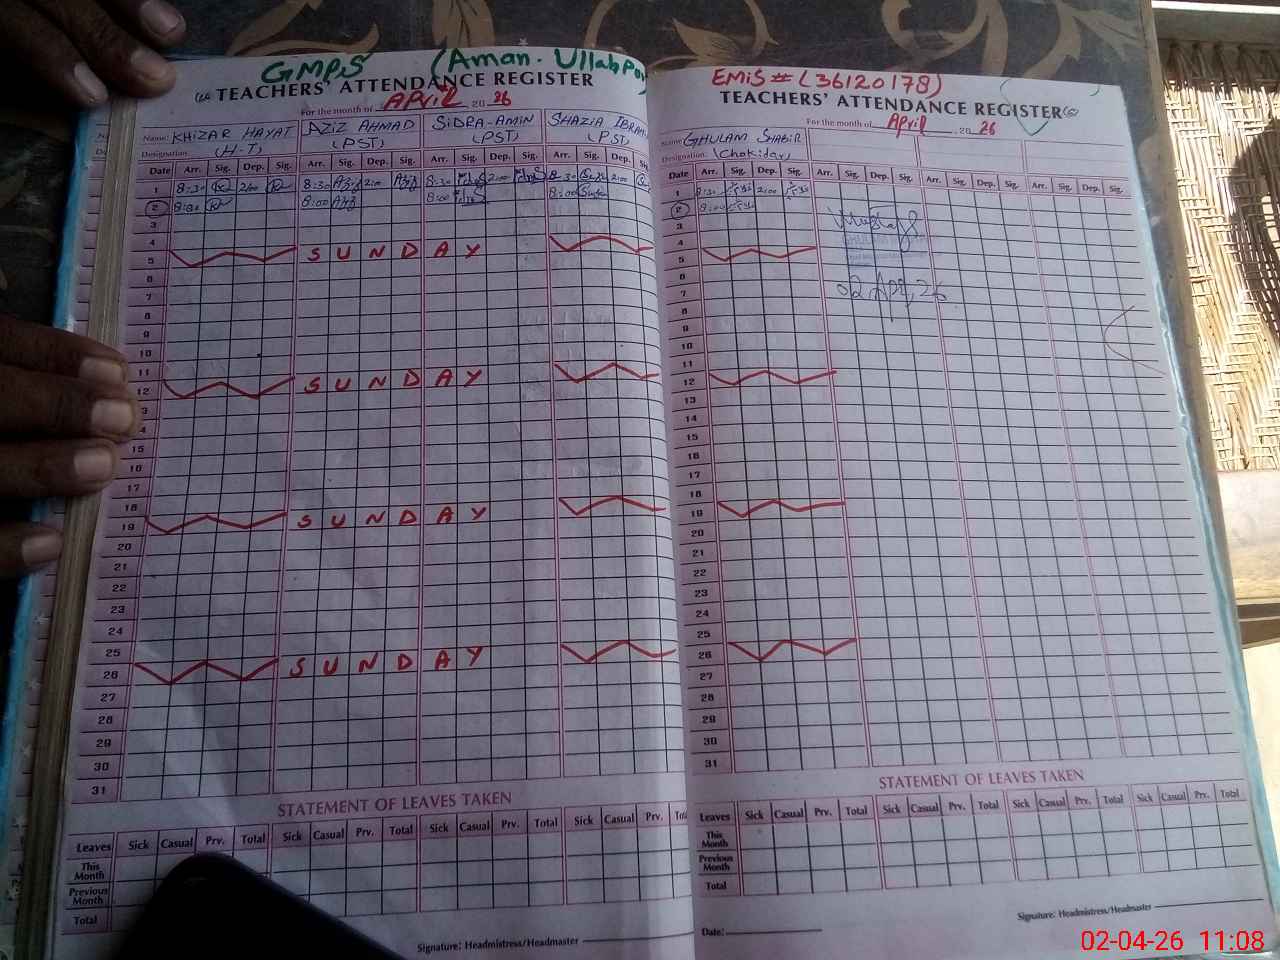 GMPS (Aman. Ullah Por
TEACHERS' ATTENDANCE REGISTER
For the month of April 20 26
Name: KHIZAR HAYAT AZIZ AHMAD SIDRA-AMIN SHAZIA IBRAH
Designation: (H-T) (PST) (PST) (PST)
Date Arr. Sig. Dep. Sig. Arr. Sig. Dep. Sig. Arr. Sig. Dep. Sig. Arr. Sig. Dep. S
1 8:30 2:00 8:30 2:00 8:30 2:00 8:30 2:00
2 8:00 8:00 8:00 8:00
3
4
5 SUNDAY
6
7
8
9
10
11
12 SUNDAY
13
14
15
16
17
18
19 SUNDAY
20
21
22
23
24
25
26 SUNDAY
27
28
29
30
31
STATEMENT OF LEAVES TAKEN
Leaves Sick Casual Prv. Total Sick Casual Prv. Total Sick Casual Prv. Total Sick Casual Prv.
This Month
Previous Month
Total
Signature: Headmistress/Headmaster
EMiS # (36120178)
TEACHERS' ATTENDANCE REGISTER
For the month of April 20 26
Name GHULAM SHABIR
Designation: (Chokidar)
Date Arr. Sig. Dep. Sig. Arr. Sig. Dep. Sig. Arr. Sig. Dep. Sig. Arr. Sig. Dep. Sig.
1 8:30 2:00
2 8:00
3
4
5
6
7
8
9
10
11
12
13
14
15
16
17
18
19
20
21
22
23
24
25
26
27
28
29
30
31
02 Apr, 26
STATEMENT OF LEAVES TAKEN
Leaves Sick Casual Prv. Total Sick Casual Prv. Total Sick Casual Prv. Total Sick Casual Prv. Total
This Month
Previous Month
Total
Signature: Headmistress/Headmaster
Date:
02-04-26 11:08